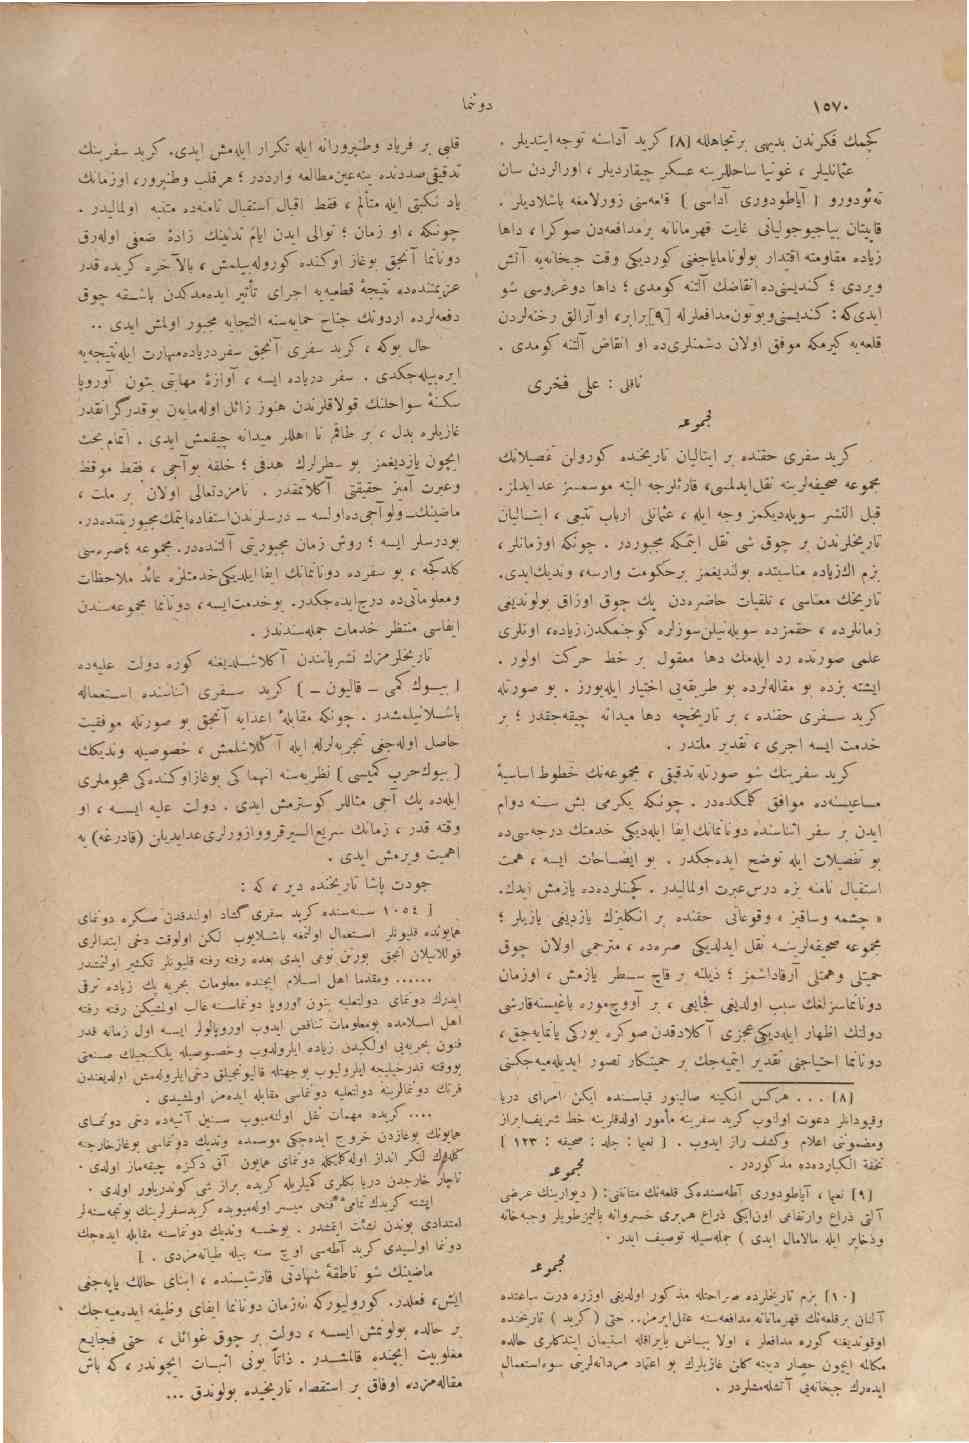 ١٥٧٠
دوننما
كچمك فكرندن بديهى برتجاهلله [٨] كريد آداسنه توجه ايتديلر .
عثمانليلر ، غونيا ساحللرينه عسكر چيقارديلر ، اورالردن سان
ته ئودورو [ آياطودورى آداسى ] قلعه سنى زورلامغه باشلاديلر .
قاپيتان بياجيوجوليانى غايت قهرمانانه برمدافعه دن صوكرا ، داها
زياده مقاومته اقتدار بولوناماياجغنى كورديكى وقت جبخانه يه آتش
ويردى ؛ كنديسى ده انقاضك آلتنه كومدى ؛ داها دوغروسى شو
ايدى كه : كنديسنى وبوتون مدافعلرله [٩] برابر ، او آرالق رخنه لردن
قلعه يه كيرمكه موفق اولان دشمنلرى ده او انقاض آلتنه كومدى .
ناقلى : على فخرى
مجموعه
كريد سفرى حقنده بر ايتاليان تاريخنده كورولن تفصيلاتك
مجموعه صحيفه لرينه نقل ايدلمسى ، قارئلرجه البته موسمسز عد ايدلمز .
قبل النشر سويله ديكمز وجه ايله ، عثمانلى ارباب تتبعى ، ايتاليان
تاريخلرندن بر چوق شى نقل ايتمكه مجبوردر . چونكه اوزمانلر ،
بزم اك زياده مناسبتده بولنديغمز برحكومت وارسه ، ونديك ايدى .
تاريخك معناسى ، تلقيات حاضره دن پك چوق اوزاق بولونديغى
زمانلرده ، حقمزده سويله نيلن سوزلره كوجنمكدن زياده ، اونلرى
علمى صورتده رد ايله مك دها معقول بر خط حركت اولور .
ايشته بزده بو مقاله لرده بو طريقه يى اختيار ايله يورز . بو صورتله
كريد سفرى حقنده ، بر تاريخچه دها ميدانه چيقه جقدر ؛ بر
خدمت ايسه اجرى ، تقدير ملتدر .
كريد سفرينك شو صورتله تدقيقى ، مجموعه نك خطوط اساسيهٔ
مساعيسنه ده موافق كلمكده در . چونكه يكرمى بش سنه دوام
ايدن بر سفر اثناسنده دوننمانك ايفا ايله ديكى خدمتك درجه سى ده
بو تفصيلات ايله توضح ايده جكدر . بو ايضاحات ايسه ، همت
استقبال نامنه بزه درس عبرت اولماليدر . كچنلرده ده يازمش ايدك .
« چشمه وساقيز ، وقوعاتى حقنده بر انكليزك يازديغى يازيلر ؛
مجموعه صحيفه لرينه نقل ايدلديكى صره ده ، مترجمى اولان چوق
حميتلى وهمتلى آرقاداشمز ؛ ذيلنه بر قاچ سطر يازمش ، اوزمان
دوننماسزلغك سبب اولديغى فجايعى ، بر آووچ موره باغيسنه قارشى
دولتك اظهار ايله ديكى عجزى آكلادقدن صوكره يوركى يانمايه جق ،
دوننما احتياجنى تقدير ايتميه جك بر حميتكار تصور ايديله ميه جكنى
[٨] ... هركس انكينه صالينور قياسنده ايكن امراى دريا
وقبودانلر دعوت اولنوب كريد سفرينه مأمور اولدقلرينه خط شريف ابراز
ومضمونى اعلام وكشف راز ايدوب . [ نعيما : جلد : صحيفه : ١٢٣ ]
تحفة الكبارده ده مذكوردر .
مجموعه
[٩] نعيما ، آياطودورى آطه سنده كى قلعه نك متانتنى : ( ديوارينك عرضى
آلتى ذراع وارتفاعى اون ايكى ذراع هربرى خسروانه باليمز طوپلر وجبه خانه
وذخاير ايله مالامال ايدى ) جمله سيله توصيف ايدر .
مجموعه
[١٠] بزم تاريخلرده صراحتله مذكور اولديغى اوزره درت ساعتده
آلنان برقلعه نك قهرمانانه مدافعه سنه عقل ايرمز.. حتى ( كريد ) تاريخنده
اوقونديغنه كوره مدافعلر ، اولا بياض بايراقله استيمان ايتدكلرى حالده
مكالمه ايچون حصار ديبنه كلن غازيلرك بو اعتماد مردانه لرينى سوء استعمال
ايده رك جبخانه يى آتشله مشلردر .
قلبى بر فرياد وطنپرورانه ايله تكرار ايله مش ايدى . كريد سفرينك
تدقيقى صددنده ينه عين مطالعه وارددر ؛ هر قلب وطنپرور ، اوزمانك
ياد نكبتى ايله متألم ، فقط اقبال استقبال نامنه ده متنبه اولماليدر .
چونكه ، او زمان ؛ توالى ايدن ايام تدنينك زادهٔ ضعفى اوله رق
دوننما آنجق بوغاز اوكنده كوروله بيلمش ، بالآخره كريده قدر
عزيمتنده ده نتيجهٔ قطعيه يه اجراى تأثير ايده مدكدن باشقه چوق
دفعه لرده اردونك جناح حمايه سنه التجايه مجبور اولمش ايدى ..
حال بوكه ، كريد سفرى آنجق سفر درياده مهارت ايله نتيجه يه
ايره بيله جكدى . سفر درياده ايسه ، آوازهٔ مهابتى بتون آوروپا
سكنهٔ سواحلنك قولاقلرندن هنوز زائل اوله مايه ن بوقدر گرانقدر
غازيلره بدل ، بر طاقم نا اهللر ميدانه چيقمش ايدى . اتمام بحث
ايچون يازديغمز بو سطرلرك هدفى ؛ خلقه بو آجى ، فقط موقظ
وعبرت آميز حقيقتى آكلاتمقدر . نامزد تعالى اولان بر ملت ،
ماضينك ــ ولو آجى ده اولسه ــ درسلرندن استفاده ايتمك مجبوريتنده در .
بودرسلر ايسه ؛ روش زمان مجبوريتى آلتنده در . مجموعه ؛ صره سى
كلدكجه ، بو سفرده دوننمانك ايفا ايلديكى خدمتلره عائد ملاحظات
ومعلوماتى ده درج ايده جكدر . بو خدمت ايسه ، دوننما مجموعه سندن
ايفاسى منتظر خدمات جمله سندندر .
تاريخلرمزك نشرياتندن آكلاشلديغنه كوره دولت عليه ده
[ بيوك كمى ــ قاليون ــ ] كريد سفرى اثناسنده استعماله
باشلانيلمشدر . چونكه مقابلهٔ اعدايه آنجق بو صورتله موفقيت
حاصل اوله جغى تجربه لرله ايله آكلاشلمش ، خصوصيله ونديكك
[ بيوك حرب كميسى ] نظريه سنه انهماكى بوغاز اوكنده كى هجوملرى
ايله ده پك آجى مثاللر كوسترمش ايدى . دولت عليه ايسه ، او
وقته قدر ، زمانك سريع السير قرووازورلرى عد ايديلن (قادرغه) يه
اهميت ويرمش ايدى .
جودت پاشا تاريخنده دير ، كه :
[ ١٠٥٤ سنه سنده كريد سفرى گشاد اولندقدن صكره دونماى
همايونده قليونلر استعمال اولنمغه باشلايوب لكن اولوقت دخى ابتدالرى
قوللانيلان آنجق بورتن نوعى ايدى بعده رفته رفته قليونلر تكثير اولنمشدر
...... ومقدما اهل اسلام ايچنده معلومات بحريه پك زياده ترقى
ايدرك دونماى دولتعليه بتون اوروپا دونماسنه غالب اولمشيكن رفته رفته
اهل اسلامده بومعلومات تناقص ايدوب اوروپالولر ايسه اول زمانه قدر
فنون بحريه يى اولكيدن زياده ايلرولدوب وخصوصيله يلكنجيلك صنعتى
بووقته قدر خيليجه ايلروليوب بوجهتله قاليونجيلق دخى ايلروله مش اولديغندن
فرنك دونمالرينه دولتعليه دونماسى مقابله ايده مز اولمشيدى .
.... كريده مهمات نقل اولنه ميوب سنين آتيه ده دخى دونماى
همايونك بوغازدن خروج ايده جكى موسمده ونديك دونماسى بوغاز خارجنه
كله رك لنكر انداز اوله كلمكله دونماى همايون آق دكزه چيقه ماز اولدى .
ناچار خارجدن دريا بكلرى كميلريله كريده براز شى كوندريلور اولدى .
ايشته كريدك تمامئ فتحى ميسر اوله ميوبده كريد سفرلرينك بوقچه سنه لر
امتدادى بوندن نشئت ايتمشدر . يوخسه ونديك دونماسنه مقابله ايده جك
دونما اولسيدى كريد آطه سى اوچ سنه بيله طيانه مزدى . ]
ماضينك شو ناطقهٔ شهادتى قارشيسنده ، ابناى حالك ياپه جغى
ايش ، فعلدر . كورولويوركه نه زمان دوننما ايفاى وظيفه ايده ميه جك
بر حالده بولونمش ايسه ، دولت بر چوق غوائل ، حتى فجايع
مغلوبيت ايچنده قالمشدر . ذاتاً بونى اثبات ايچوندر ، كه باش
مقاله مزده اوفاق بر استقصاء تاريخيده بولوندق ...